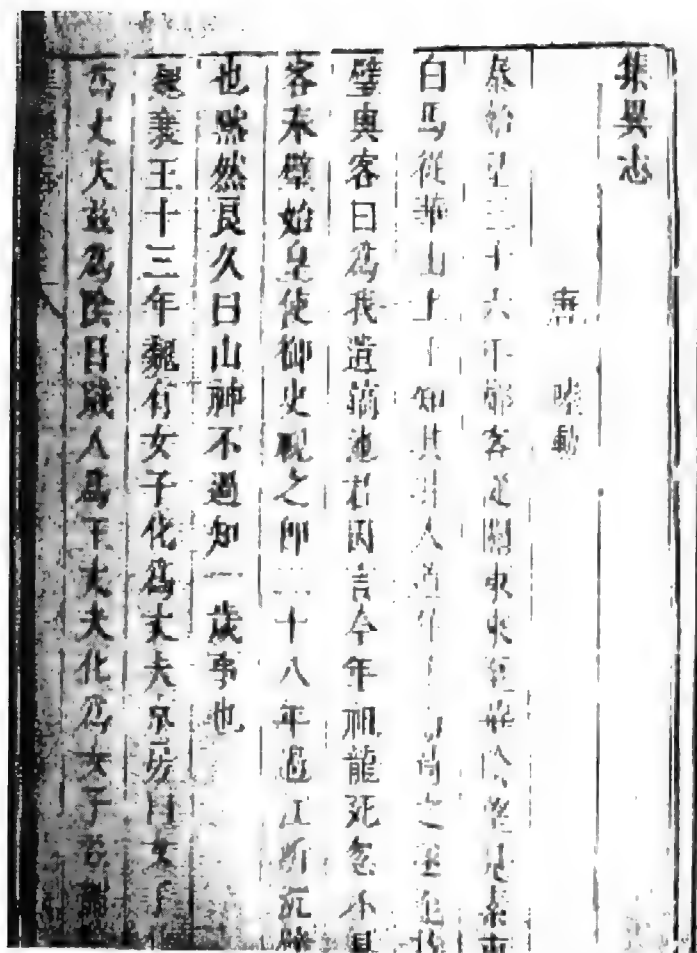 集異志
唐 勳
秦始皇三十六年鄭客從關東來至華陰望見素車
白馬從華山上下知其非人道住
璧與客曰為我遺鎬池君因言今年祖龍死忽不見
客奉璧始皇使御史視之即二十八年過江所沉璧
也默然良久曰山神不過知一歲事也
魏襄王十三年魏有女子化為丈夫京房曰女子
為丈夫兹為陰昌賤人為王丈夫化為女子兹謂